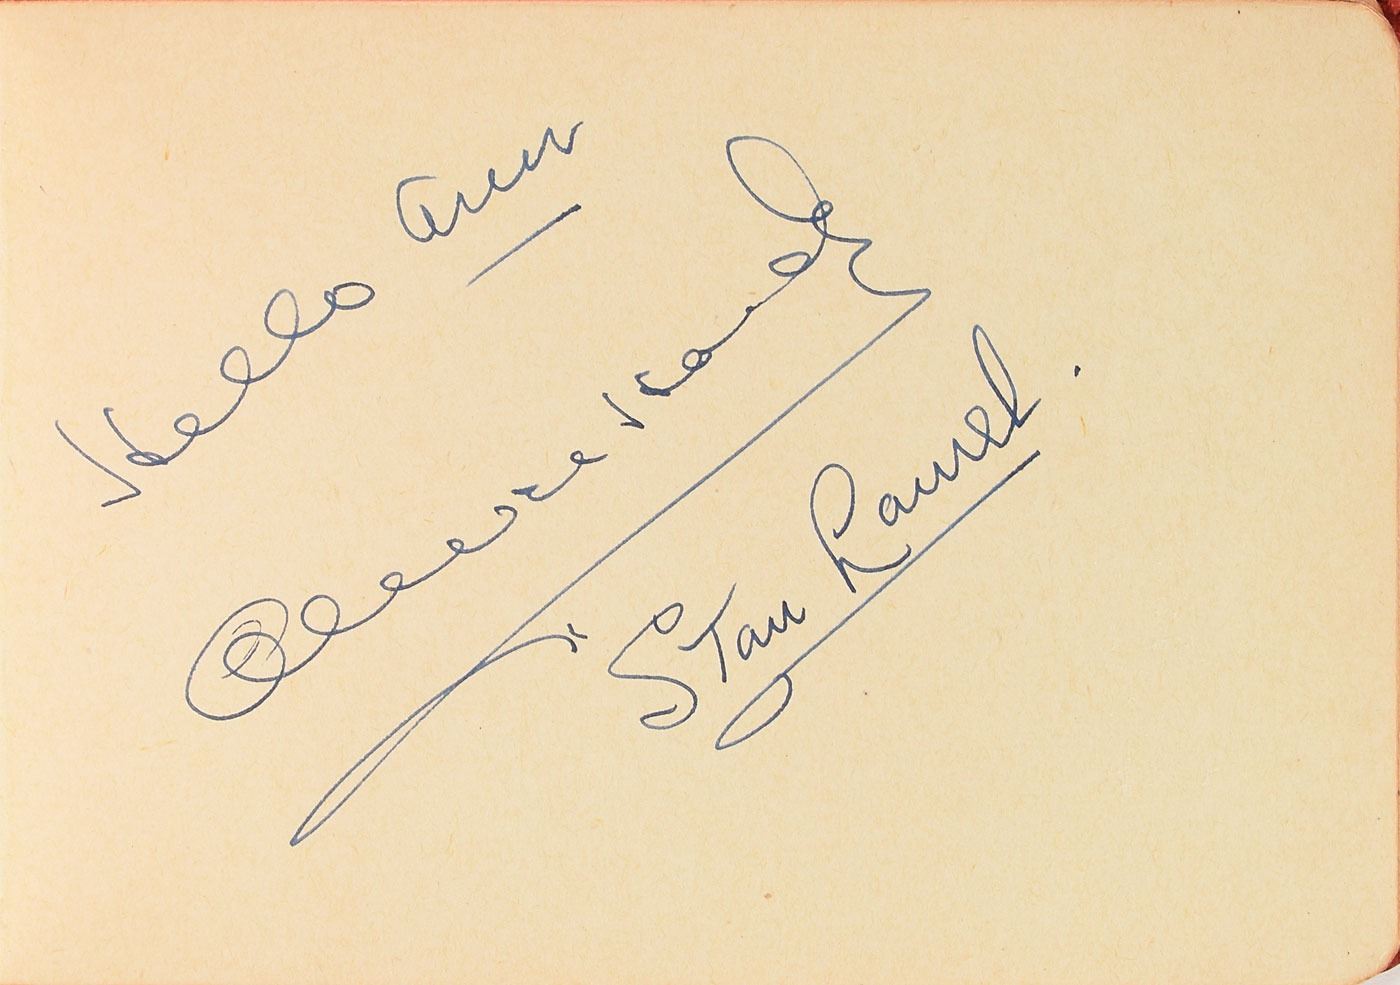 Hello Ann
Oliver Hardy
Stan Laurel.